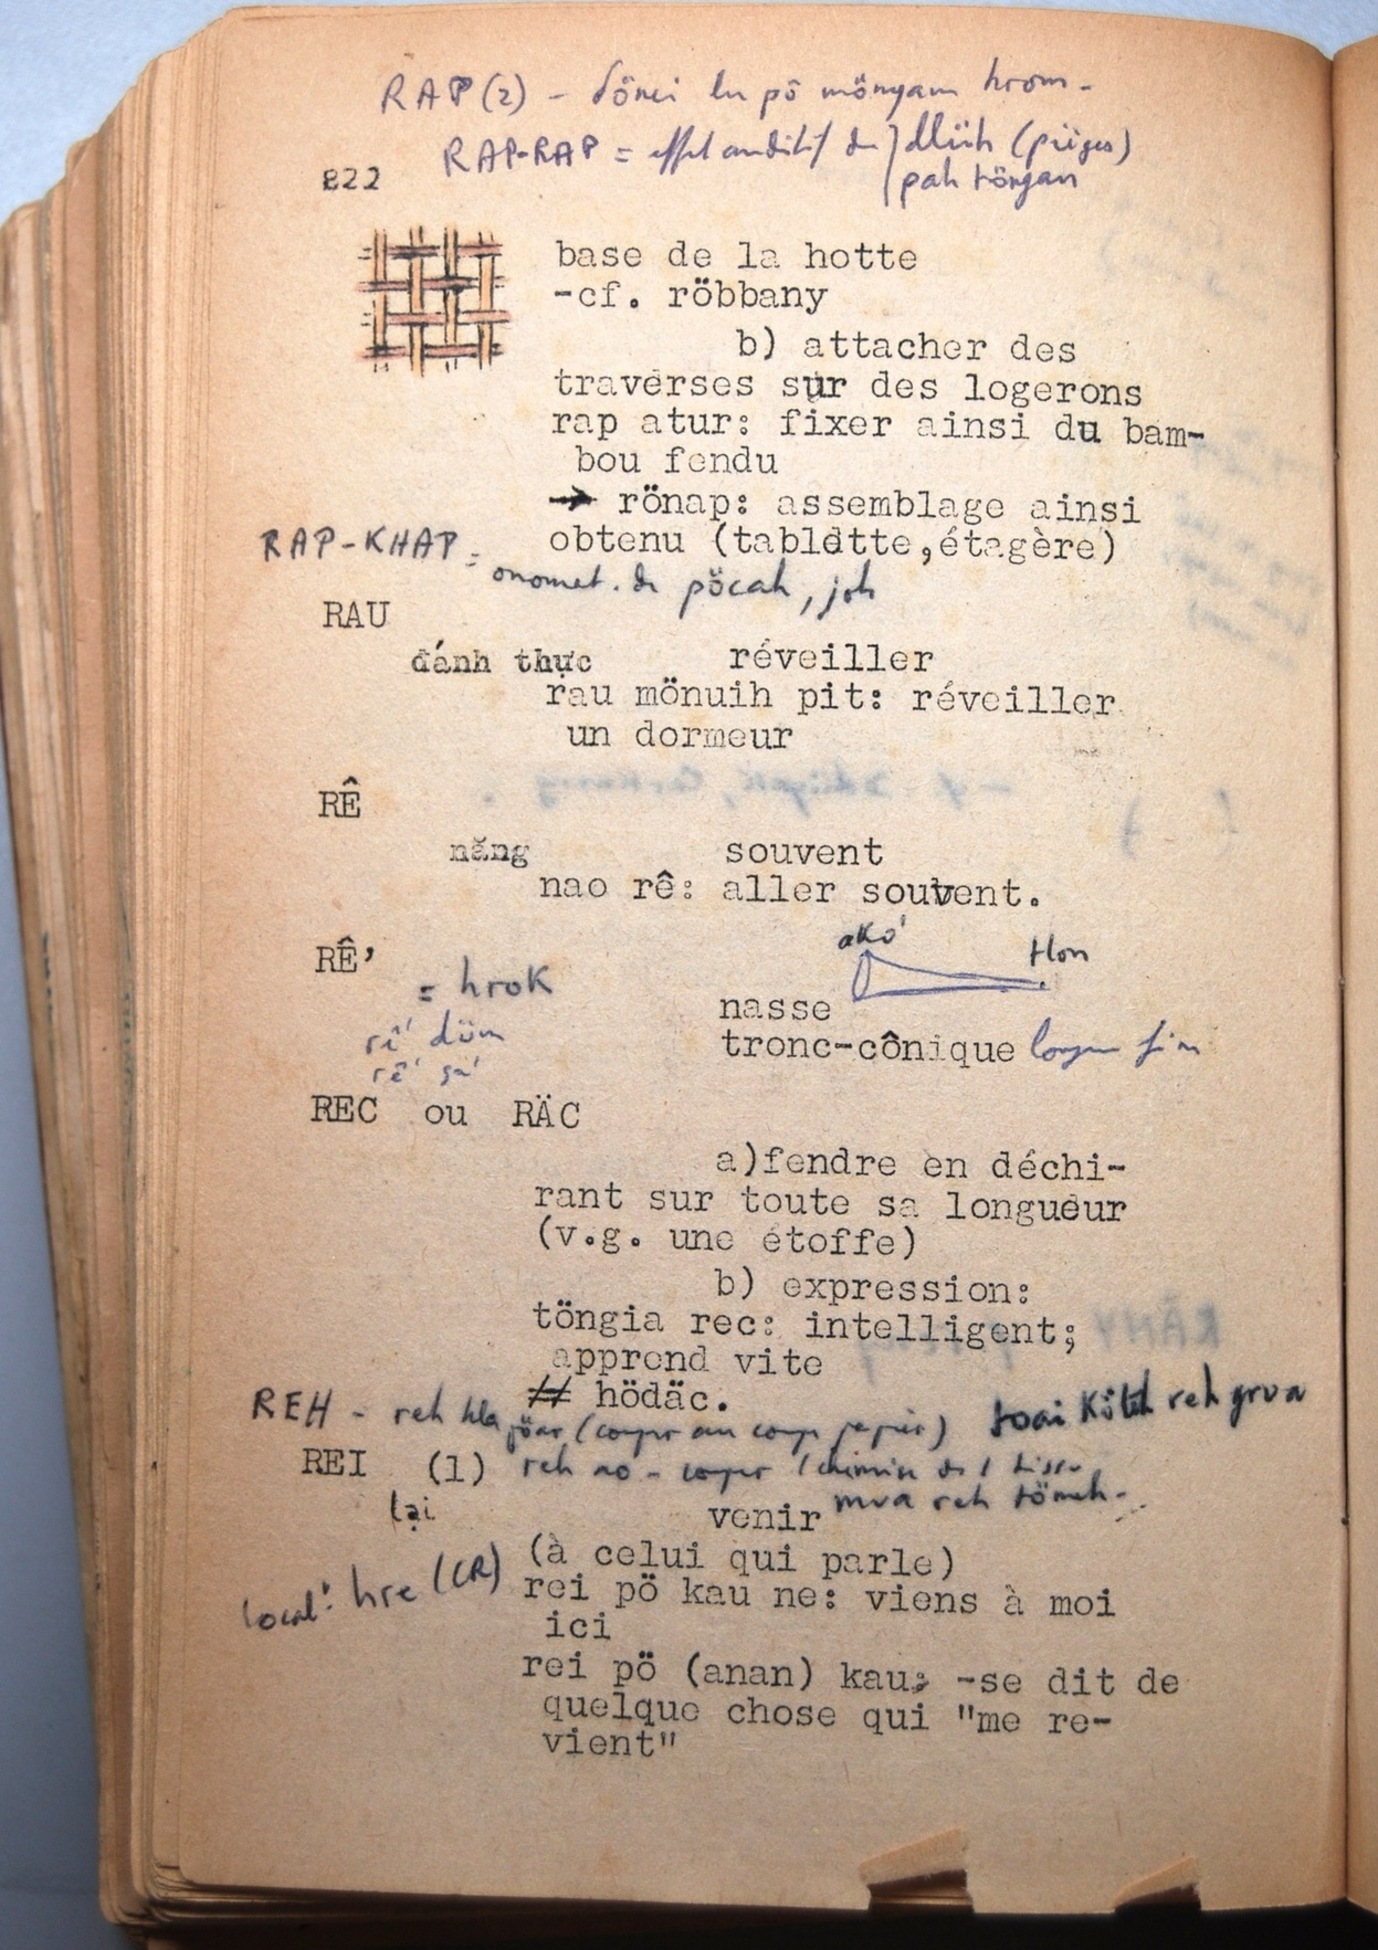 RAP (2) - dönei lu pô mönyam hrom -
RAP-RAP = effet auditif de dlüh (pièges)
pah töngan
822
base de la hotte
-cf. röbbany
b) attacher des
traverses sur des logerons
rap atur: fixer ainsi du bam-
bou fendu
→ rönap: assemblage ainsi
obtenu (tablette,étagère)
RAP-KHAP =
onomat. de pöcah, joh
RAU
đánh thực réveiller
rau mönuih pit: réveiller
un dormeur
RÊ
năng souvent
nao rê: aller souvent.
akö' Hon
RÊ'
= hrok
nasse
rê' döm
tronc-cônique longue fin
rê' sa'
REC ou RÄC
a)fendre en déchi-
rant sur toute sa longueur
(v.g. une étoffe)
b) expression:
töngia rec: intelligent;
apprend vite
# hödäc.
REH - reh hla jöar (couper au coupe papier) reh grua
REI (1) reh ao - couper
lại venir mua reh tömeh-
(à celui qui parle)
local: hre (CR)
rei pö kau ne: viens à moi
ici
rei pö (anan) kau: -se dit de
quelque chose qui "me re-
vient"